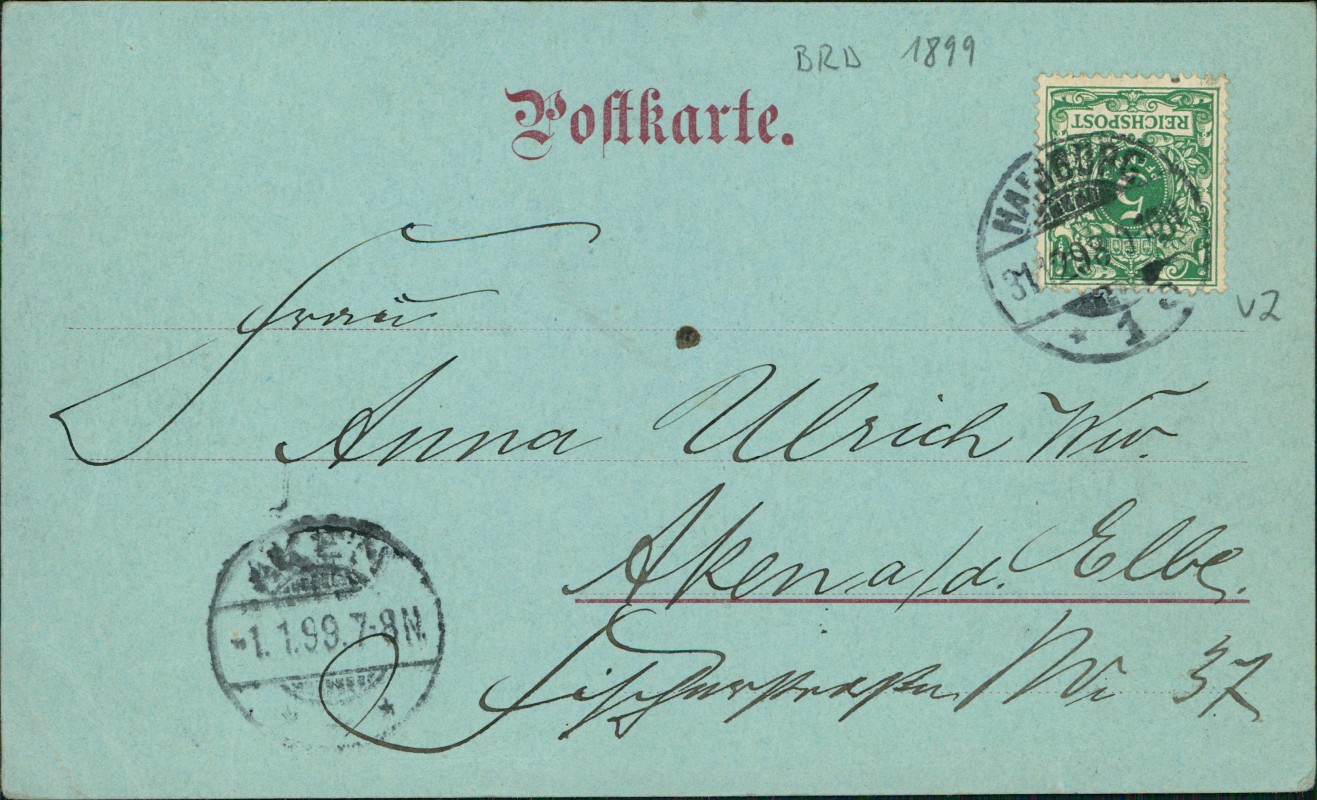 BRD 1899
Postkarte.
REICHSPOST
5
HAMBURG
31.12.98
1
V2
Frau
Anna Ulrich Ww.
Aken a/d. Elbe.
Fischerstraße Nr 37
AKEN
1.1.99.7-8N.